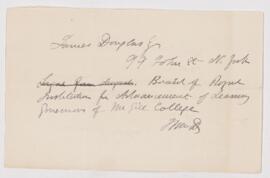 James Douglas Jr
99 John St N. York
Board of Royal
Institution for Advancement of Learning
Governors of McGill College